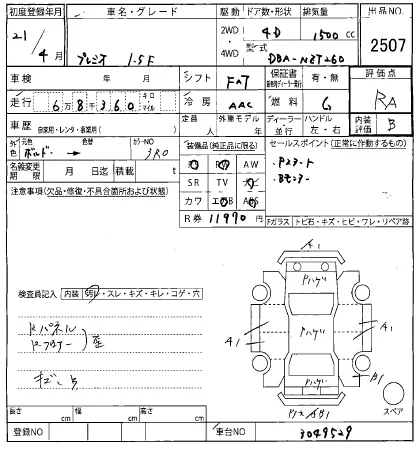 初度登録年月 車名・グレード 駆動 ドア数・形状 排気量 出品NO
21/4月 プレミオ 1.5F 2WD 4WD 4D 1500cc 2507
型式 DBA-NZT260
車検 年 月 シフト FAT 保証書 有・無 評価点 RA
走行 6万8千360 キロ マイル 冷房 AAC 燃料 G
車歴 自家用・レンタ・事業用( ) 定員 人 外車モデル 年 ディーラー 並行 ハンドル 左・右 内装評価 B
外色 元色 ボルドー → 色替 カラーNO 3R0 装備品(純正品に限る) セールスポイント(正常に作動するもの)
名義変更期限 月 日迄 積載 t PS PW AW ・Pスタート
注意事項(欠品・修復・不具合箇所および状態) SR TV ナビ ・Bモニター
カワ エAB ABS
R券 11970円
Fガラス トビ石・キズ・ヒビ・ワレ・リペア跡
A1
検査員記入 内装 ヨゴレ・スレ・キズ・キレ・コゲ・穴
Rパネル
Rフロアー
キズ
Pハゲ
Pハゲ
Pハゲ
A1
A1
B1
スペア
長さ cm 幅 cm 高さ cm
登録NO 車台NO 3049529